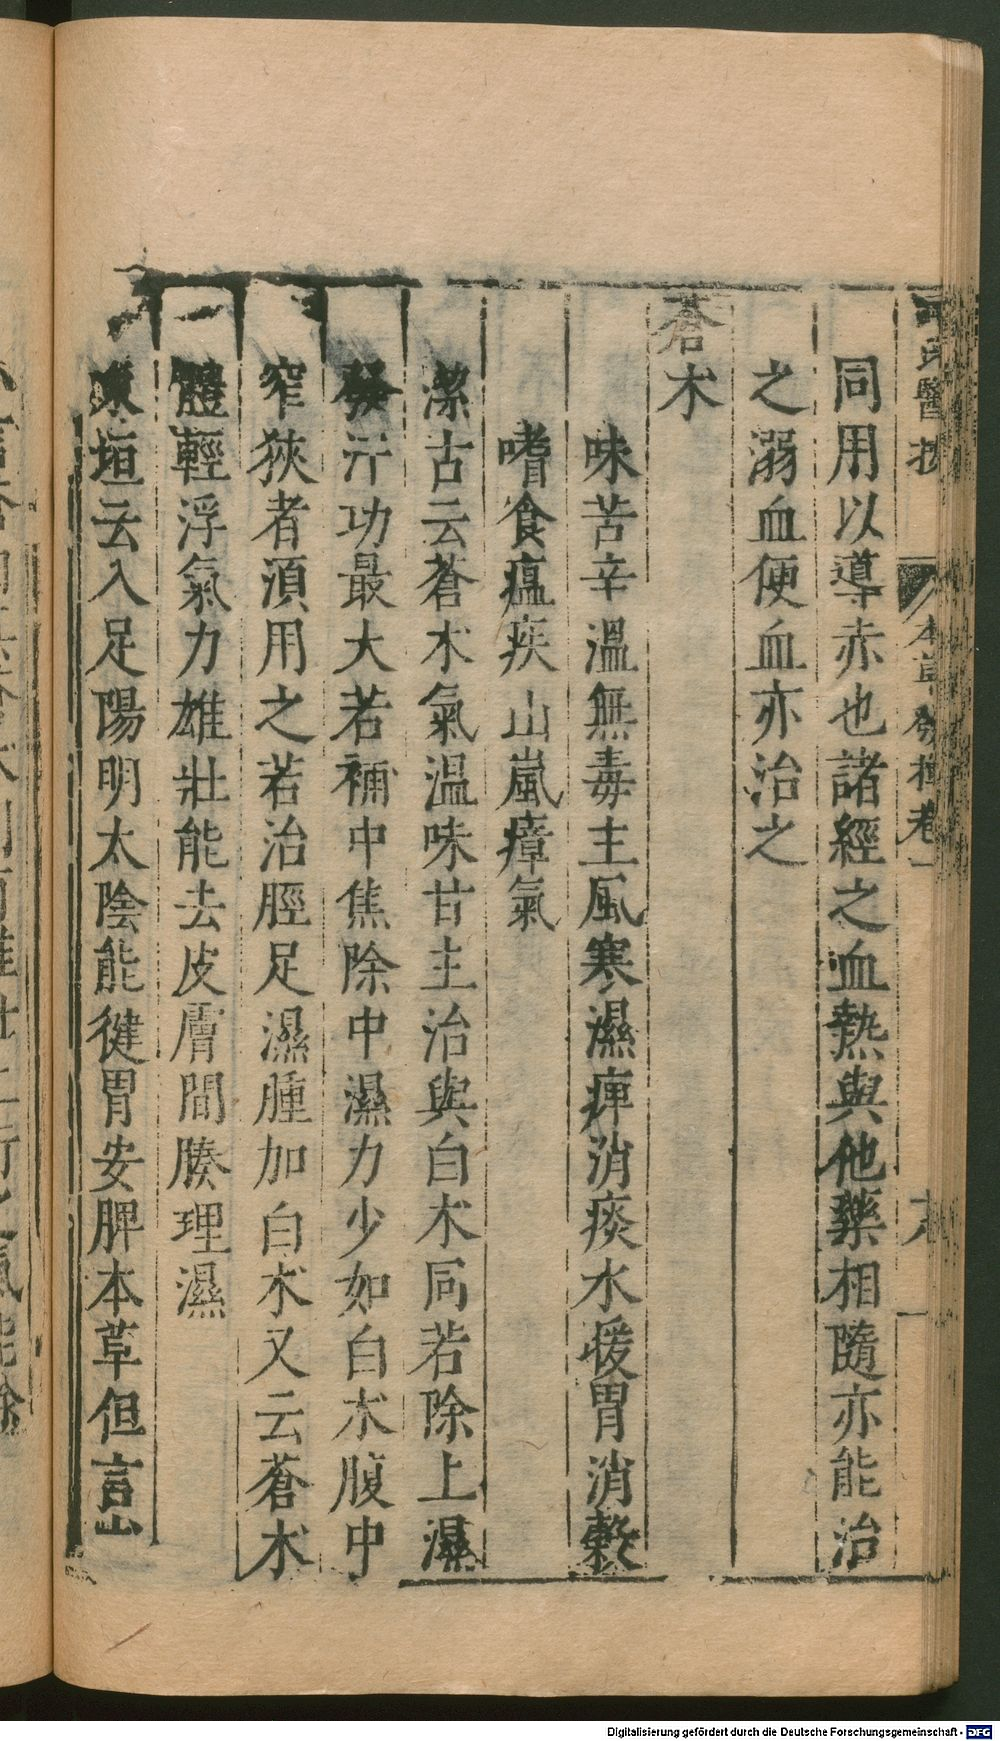 氏醫按 本草發揮卷一 十六
同用以導赤也諸經之血熱與他藥相隨亦能治
之溺血便血亦治之
蒼朮
味苦辛溫無毒主風寒濕痺消痰水煖胃消穀
嗜食瘟疾山嵐瘴氣
潔古云蒼朮氣溫味甘主治與白朮同若除上濕
發汗功最大若補中焦除中濕力少如白朮腹中
窄狹者須用之若治脛足濕腫加白朮又云蒼朮
體輕浮氣力雄壯能去皮膚間腠理濕
東垣云入足陽明太陰能健胃安脾本草但言
Digitalisierung gefördert durch die Deutsche Forschungsgemeinschaft - DFG